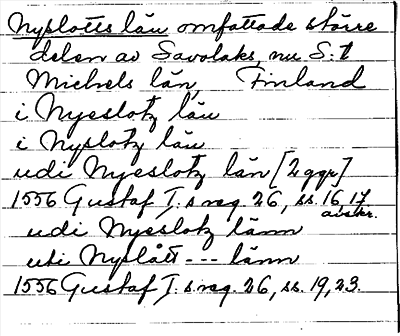 Nyslotts län omfattade större
delen av Savolaks, nu S:t
Michels län, Finland
i Nyeslotz län
i Nyslotz län
udi Nyeslotz län [2 ggr]
1556 Gustaf I:s reg. 26, ss. 16, 17
avskr.
udi Nyeslotz länn
uti Nyslått --- länn
1556 Gustaf I:s reg. 26, ss. 19, 23.